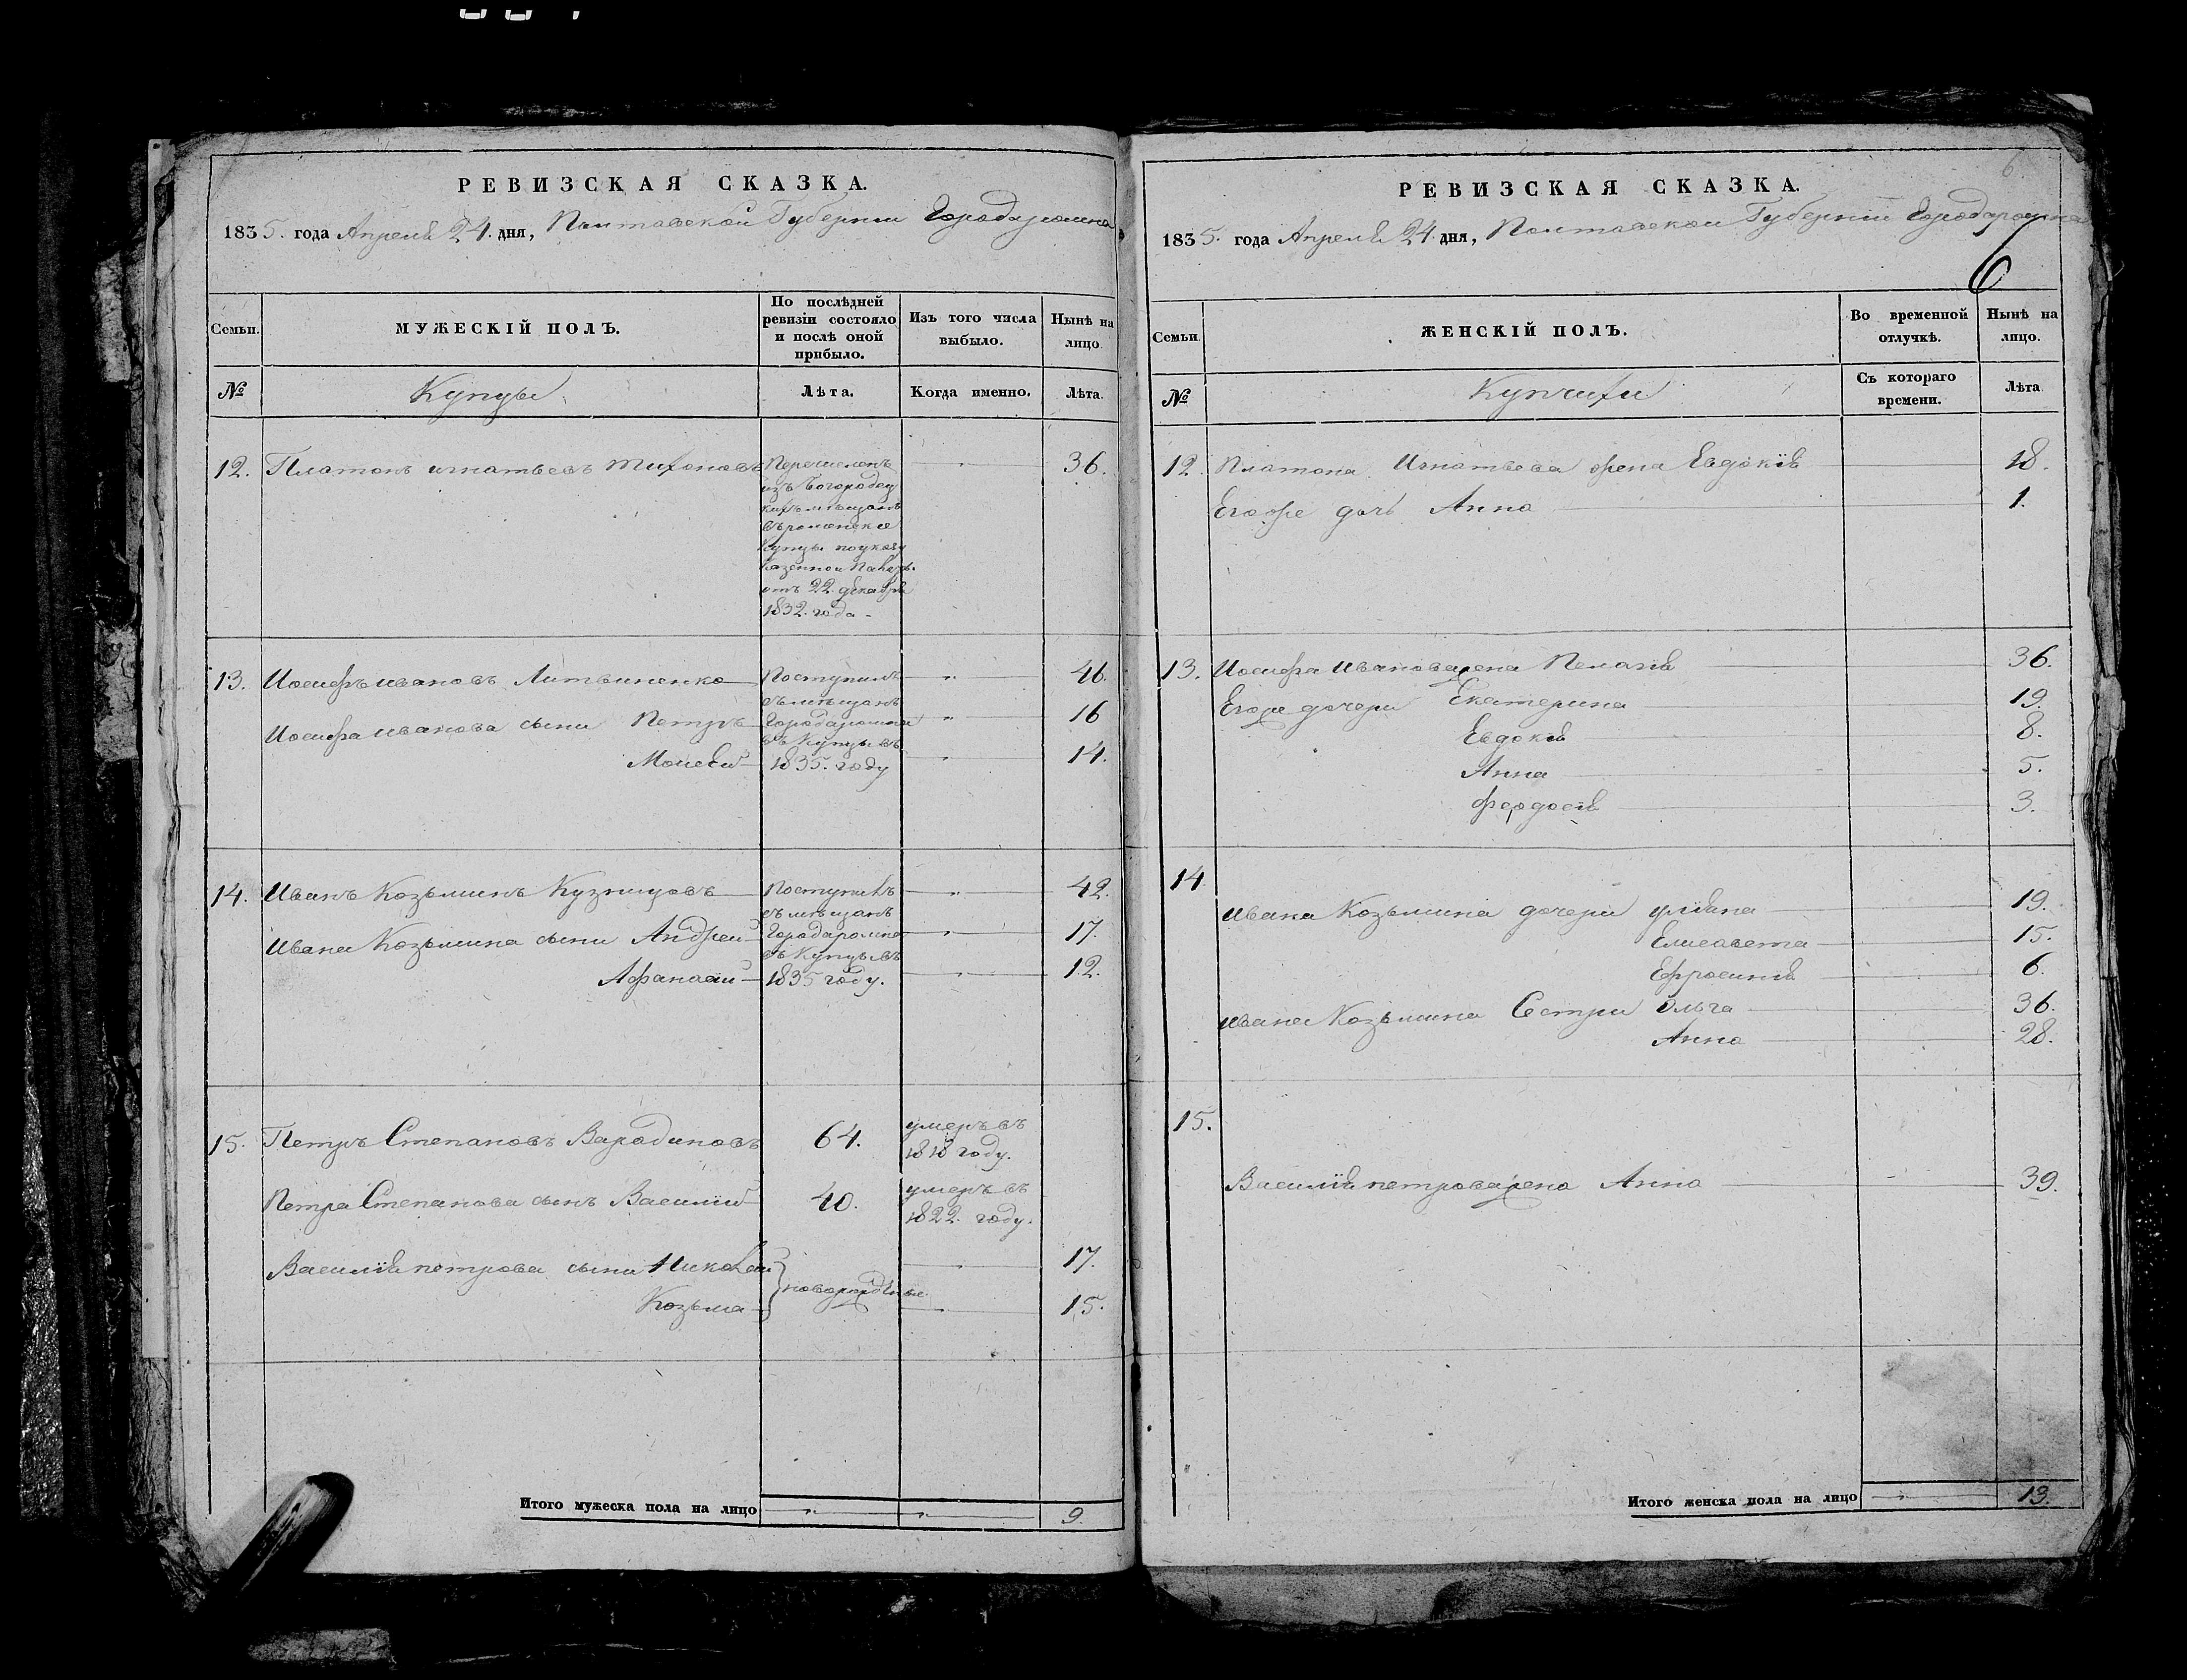 РЕВИЗСКАЯ СКАЗКА.
1835. года Апреля 24. дня, Полтавской Губернии Города ромна
Семьи. МУЖЕСКІЙ ПОЛЪ. По послѣдней ревизіи состояло и послѣ оной прибыло. Изъ того числа выбыло. Нынѣ на лицо.
№ Купцы Лѣта. Когда именно. Лѣта.
12. Платонъ игнатьевъ тихоновъ Перечисленъ 36.
изъ Богородец
кихъ мѣщанъ
въ роменские
Купцы по указу
Казенной Палаты
отъ 22. декабря
1832. года
13. Иосифъ ивановъ Литвиненко Поступилъ 46.
съ мѣщанъ
Иосифа иванова сыни Петръ Города ромна 16
въ Купцы въ
Моисей 1835. году 14.
14. Иванъ Козьминъ Кузницовъ Поступилъ 42.
съ мѣщанъ
Ивана Козьмина сыни Андрей Города ромна 17.
въ Купцы въ
Афанасий 1835 году. 12.
15. Петръ Степановъ Вародиновъ 64. умеръ въ
1818 году.
Петра Степанова сынъ Василий 40. умеръ въ
1822. году.
Василия петрова сыни Николай 17.
новорожденые
Козьма 15.
Итого мужеска пола на лицо 9.
6.
РЕВИЗСКАЯ СКАЗКА.
1835. года Апреля 24. дня, Полтавской Губернии Города ромна
6
Семьи. ЖЕНСКІЙ ПОЛЪ. Во временной отлучкѣ. Нынѣ на лицо.
№ Купчихи Съ котораго времени. Лѣта
12. Платона Игнатьева жена Евдокія 18.
Его же дочь Анна 1.
13. Иосифа Иванова жена Пелагея 36.
Его же дочери Екатерина 19.
Евдокія 8.
Анна 5.
Феодосія 3.
14.
Ивана Козьмина дочери улияна 19.
Елисавета 15.
Ефросинія 6.
Ивана Козьмина Сестри Ольга 36.
Анна 28.
15.
Василія петрова жена Анна 39.
Итого женска пола на лицо 13.